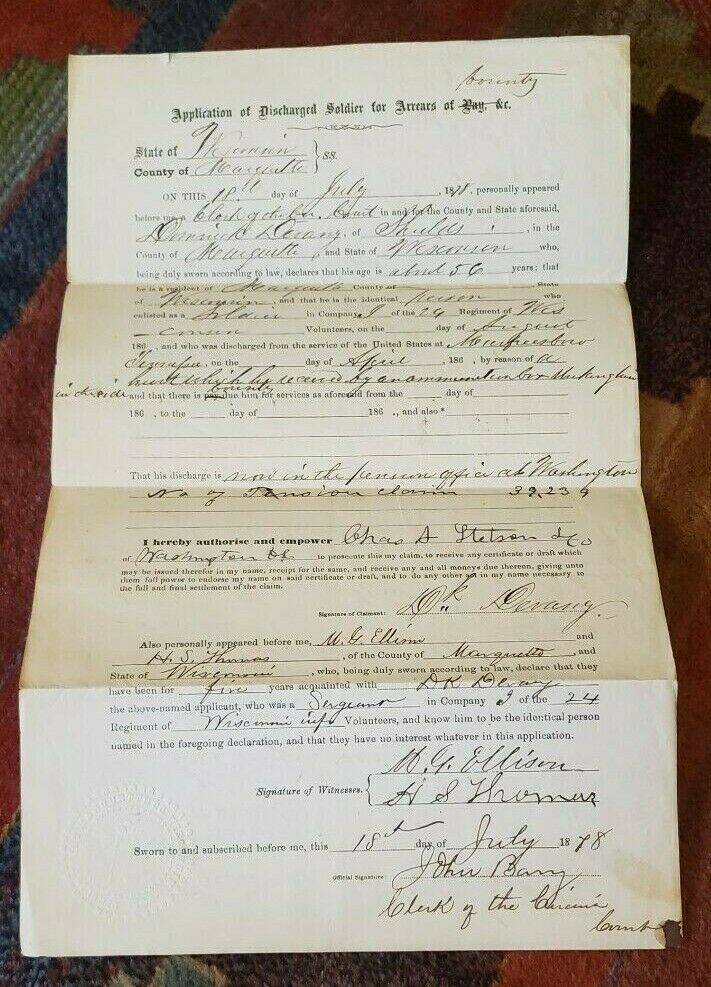 bounty
Application of Discharged Soldier for Arrears of Pay, &c.
State of Wisconsin
County of Marquette } SS.
ON THIS 18th day of July , 1878. personally appeared
before me, a Clerk of the Cir. Court in and for the County and State aforesaid,
Derany, of Shields , in the
County of Marquette , and State of Wisconsin who,
being duly sworn according to law, declares that his age is about 56 years; that
he is a resident of Marquette County of State
of Wisconsin, and that he is the identical person who
enlisted as a Soldier in Company I of the 24 Regiment of Wis
-consin Volunteers, on the day of August
186 , and who was discharged from the service of the United States at
on the day of April , 186 , by reason of a
hurt which he received by an ammunition box striking him
in the side and that there is pay bounty due him for services as aforesaid from the day of
186 , to the day of 186 ., and also *
That his discharge is now in the pension office at Washington
No of Pension claim 39,239
I hereby authorise and empower Chas A Stetson & Co
of Washington DC to prosecute this my claim, to receive any certificate or draft which
may be issued therefor in my name, receipt for the same, and receive any and all moneys due thereon, giving unto
them full power to endorse my name on said certificate or draft, and to do any other act in my name necessary to
the full and final settlement of the claim.
Signature of Claimant: Dk Derany.
Also personally appeared before me, M. G. Ellison and
H. S. Thomas , of the County of Marquette , and
State of Wisconsin , who, being duly sworn according to law, declare that they
have been for five years acquainted with DK Derany
the above-named applicant, who was a Sergeant in Company I of the 24
Regiment of Wisconsin inf Volunteers, and know him to be the identical person
named in the foregoing declaration, and that they have no interest whatever in this application.
Signature of Witnesses. { M. G. Ellison
H S Thomas
Sworn to and subscribed before me, this 18th day of July 1878
Official Signature: John Barry
Clerk of the Circuit
Court